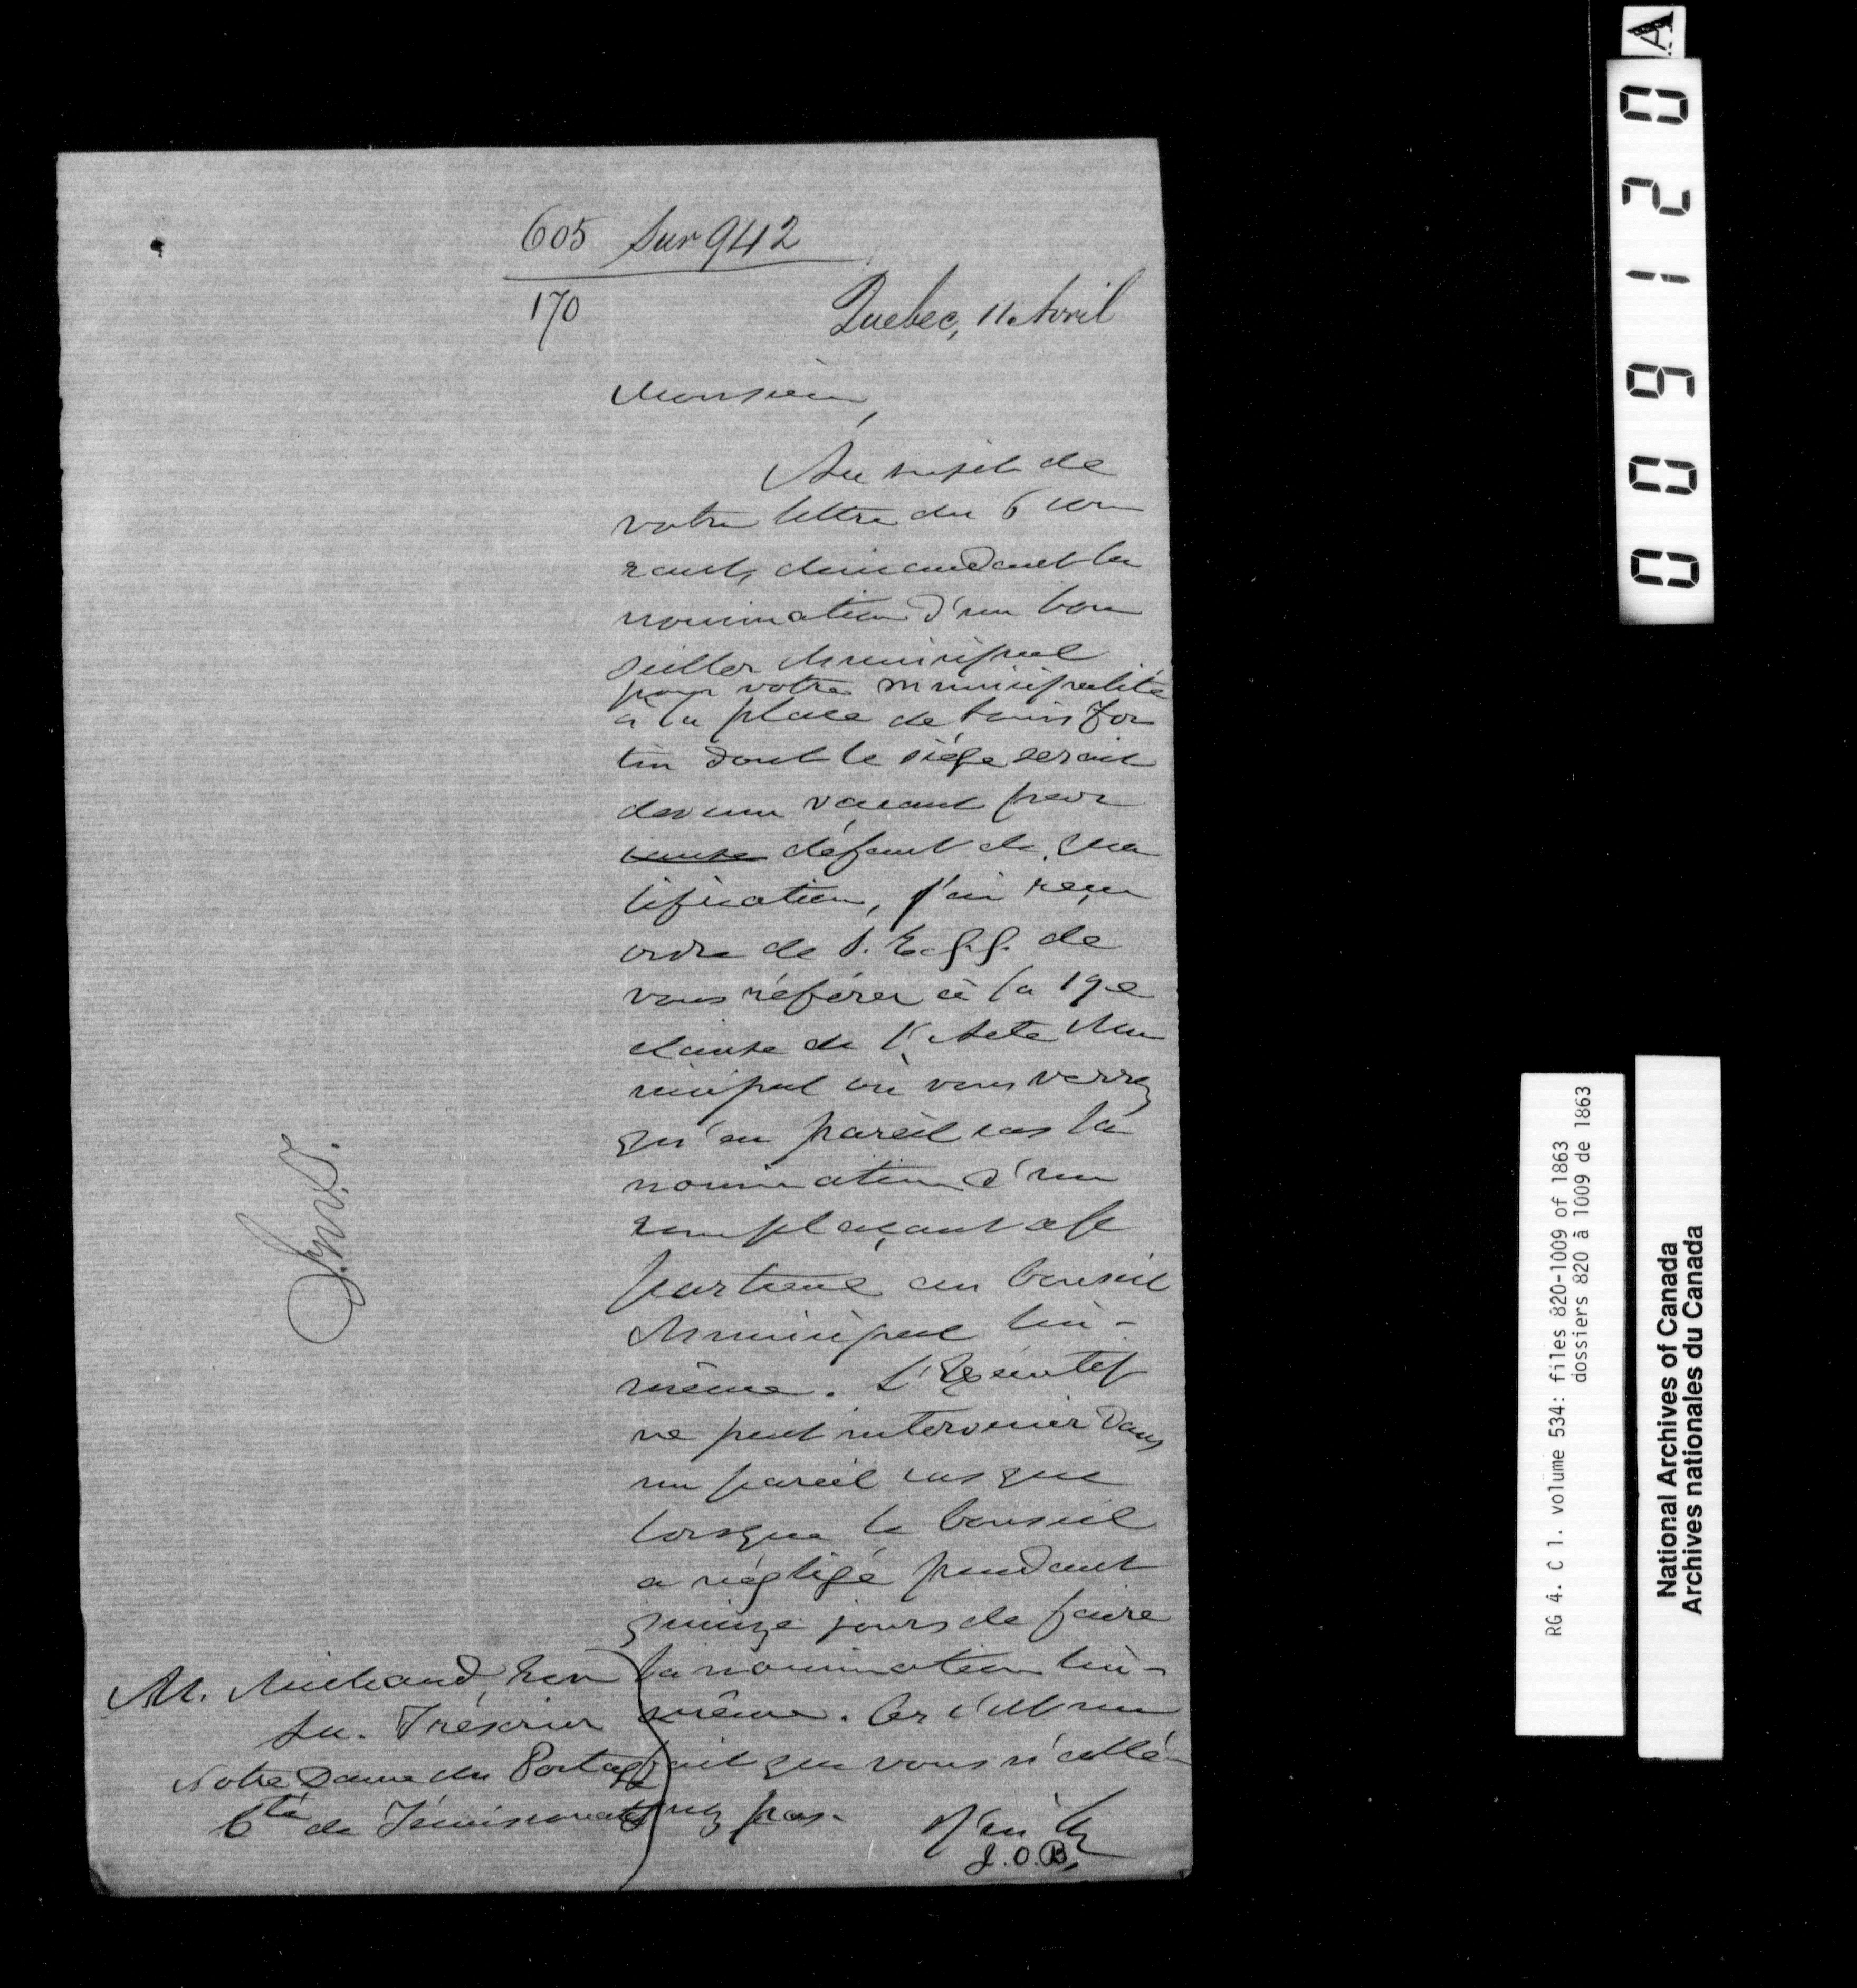 605 Sur 942
170
Quebec, 11 Avril
Monsieur,
Au sujet de
votre lettre du 6 cou
rant, demandant la
nomination d'un Con
seiller Municipal
pour votre municipalité
à la place de Louis For
tin dont le siége serait
devenu vacant par
cause défaut de qua
lification, j'ai reçu
ordre de S. E. g. g. de
vous référer à la 19e
clause de l'Acte Mu
nicipal où vous verrez
qu'en pareil cas la
nomination d'un
remplaçant ap
partient au Conseil
Municipal lui-
même. L'Exécutif
ne peut intervenir dans
un pareil cas que
lorsque le Conseil
a négligé pendant
quinze jours de faire
la nomination lui-
même. Or c'est un
fait que vous n'allé-
guez pas.
J'ai &c
J.O.B.
M. Michaud,
Sec. Trésorier
Notre Dame du Portage
Cté de Témiscouata
009120 A
RG 4. C 1. volume 534: files 820-1009 of 1863
dossiers 820 à 1009 de 1863
National Archives of Canada
Archives nationales du Canada